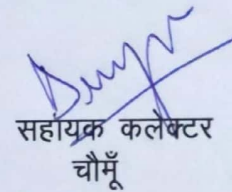 सहायक कलेक्टर
चौमूँ